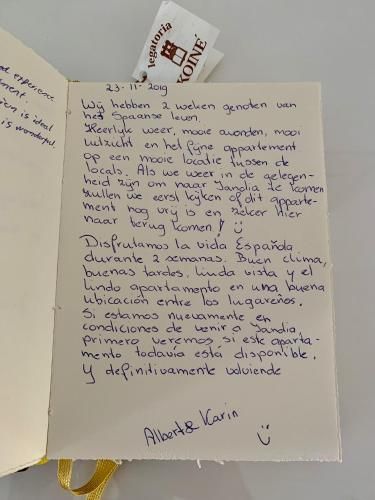 legatoria
KOINÉ
d experience
ment.
ien, is ideal
is wonderful
23-11-2019
Wij hebben 2 weken genoten van
het Spaanse leven.
Heerlijk weer, mooie avonden, mooi
uitzicht en het fijne appartement
op een mooie locatie tussen de
locals. Als we weer in de gelegen-
heid zijn om naar Jandia te komen
zullen we eerst kijken of dit apparte-
ment nog vrij is en zeker hier
naar terug komen! ü
Disfrutamos la vida Española
durante 2 semanas. Buen clima,
buenas tardes, linda vista y el
lindo apartamento en una buena
ubicación entre los lugareños.
Si estamos nuevamente en
condiciones de venir a Jandia
primero veremos si este aparta-
mento todavía está disponible.
Y definitivamente volviende
Albert & Karin
ü